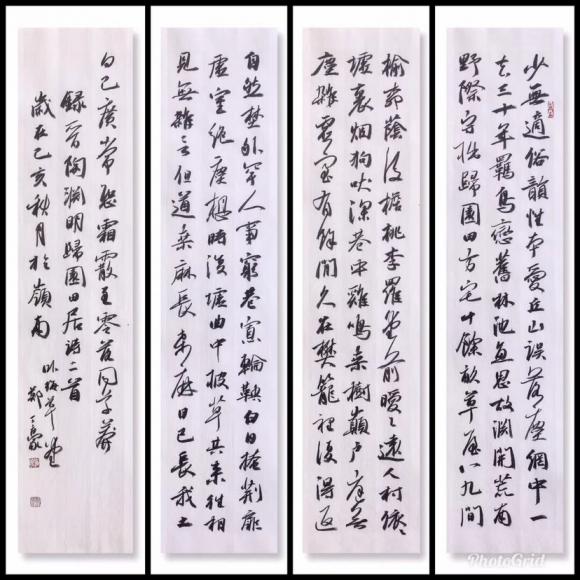 少無適俗韻性本愛丘山誤落塵網中一
去三十年羈鳥戀舊林池魚思故淵開荒南
野際守拙歸園田方宅十餘畝草屋八九間
榆柳蔭後檐桃李羅堂前曖〻遠人村依〻
墟裏烟狗吠深巷中雞鳴桑樹巔戶庭無
塵雜虛室有餘閒久在樊籠裡復得返
自然埜外罕人事窮巷寡輪鞅白日掩荊扉
虛室絕塵想時復墟曲中披草共來往相
見無雜言但道桑麻長桑麻日已長我土
日已廣常恐霜霰至零落同草莽
錄晉陶淵明歸園田居詩二首
歲在己亥秋月於嶺南
草堂
鄭
PhotoGrid